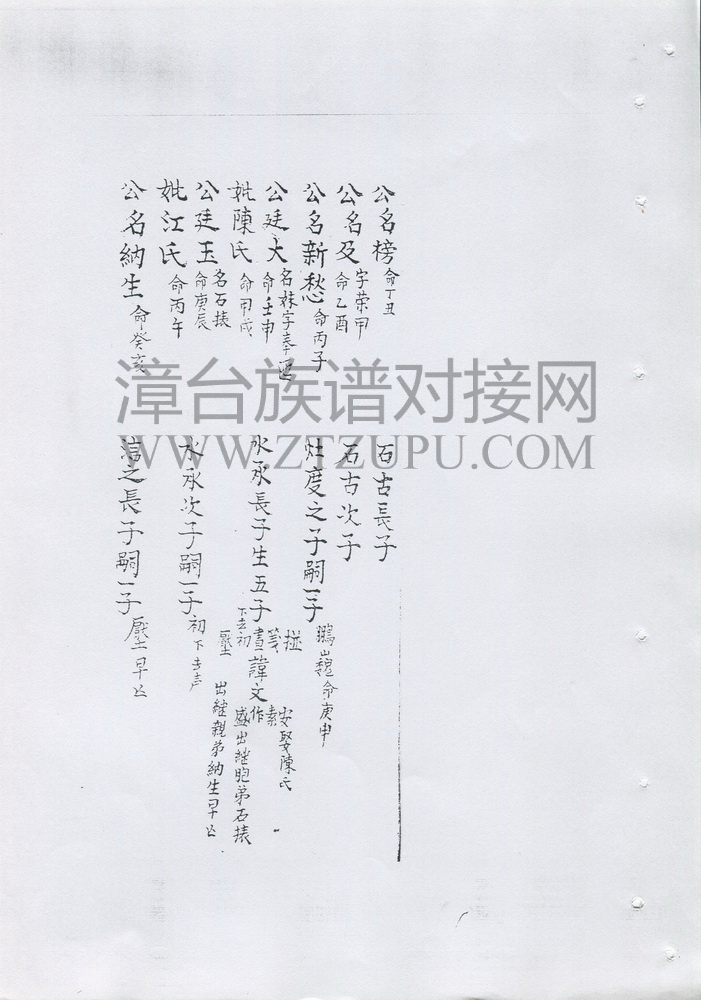 公名榜 命丁丑
石古長子
公名及 字荣甲 命乙酉
石古次子
公名新愁 命丙子
灶度之子嗣一子 命庚申
公廷大 名袜字奉 命壬申
水承長子生五子 諱文
安娶陳氏
妣陳氏 命甲戍
盛出継胞弟石揍
出継親弟納生早亡
公廷玉 名石揍 命庚辰
水承次子嗣一子 初
妣江氏 命丙午
公名納生 命癸亥
浩之長子嗣一子 早亡
漳台族谱对接网
WWW.ZTZUPU.COM